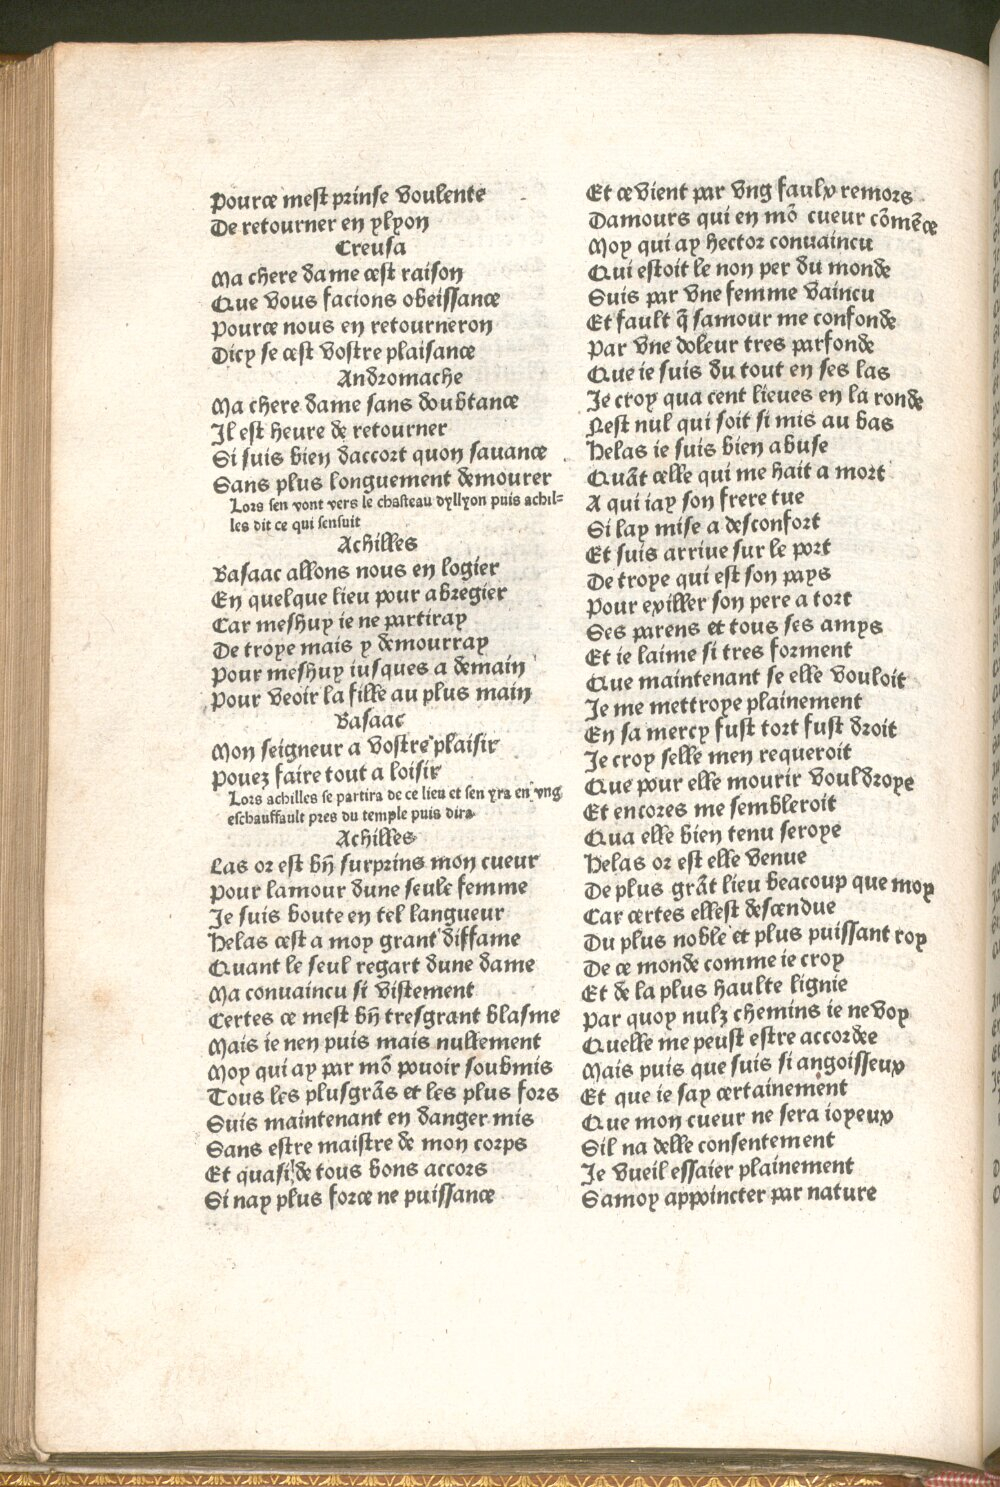 Pource mest prinse voulente
De retourner en ylyon
Creusa
Ma chere dame cest raison
Que vous facions obeissance
Pource nous en retourneron
Dicy se cest vostre plaisance
Andromache
Ma chere dame sans doubtance
Il est heure de retourner
Si suis bien daccort quon sauance
Sans plus longuement demourer
Lors sen vont vers le chasteau dyllyon puis achil=
les dit ce qui sensuit
Achilles
Basaac allons nous en logier
En quelque lieu pour abregier
Car meshuy ie ne partiray
De troye mais y demourray
Pour meshuy iusques a demain
Pour veoir la fille au plus main
Basaac
Mon seigneur a vostre plaisir
Pouez faire tout a loisir
Lors achilles se partira de ce lieu et sen yra en vng
eschauffault pres du temple puis dira
Achilles
Las or est bñ surprins mon cueur
Pour lamour dune seule femme
Je suis boute en tel langueur
Helas cest a moy grant diffame
Quant le seul regart dune dame
Ma conuaincu si vistement
Certes ce mest bñ tresgrant blasme
Mais ie nen puis mais nullement
Moy qui ay par mõ pouoir soubmis
Tous les plusgrãs et les plus fors
Suis maintenant en danger mis
Sans estre maistre de mon corps
Et quasi de tous bons accors
Si nay plus force ne puissance
Et ce vient par vng faulx remors
Damours qui en mõ cueur cõmẽce
Moy qui ay hector conuaincu
Qui estoit le non per du monde
Suis par vne femme vaincu
Et fault q̃ samour me confonde
Par vne doleur tres parfonde
Que ie suis du tout en ses las
Je croy qua cent lieues en la ronde
Nest nul qui soit si mis au bas
Helas ie suis bien abuse
Quãt celle qui me hait a mort
A qui iay son frere tue
Si lay mise a desconfort
Et suis arriue sur le port
De troye qui est son pays
Pour exiller son pere a tort
Ses parens et tous ses amys
Et ie laime si tres forment
Que maintenant se elle vouloit
Je me mettroye plainement
En sa mercy fust tort fust droit
Je croy selle men requeroit
Que pour elle mourir vouldroye
Et encores me sembleroit
Qua elle bien tenu seroye
Helas or est elle venue
De plus grãt lieu beacoup que moy
Car certes ellest descendue
Du plus noble et plus puissant roy
De ce monde comme ie croy
Et de la plus haulte lignie
Par quoy nulz chemins ie ne voy
Quelle me peust estre accordee
Mais puis que suis si angoisseux
Et que ie say certainement
Que mon cueur ne sera ioyeux
Sil na delle consentement
Je vueil essaier plainement
Samoy appoincter par nature